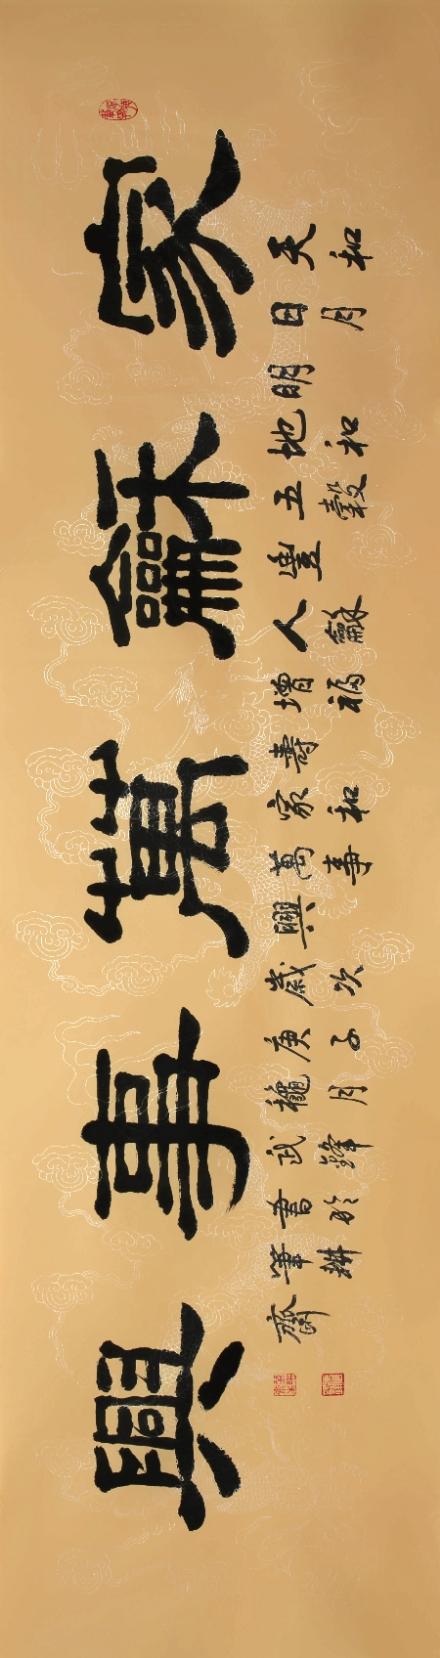 家龢萬事興
天和日月明地和五穀豐人龢增福壽家和萬事興歲次庚子穐月武鋒書於筆耕齋